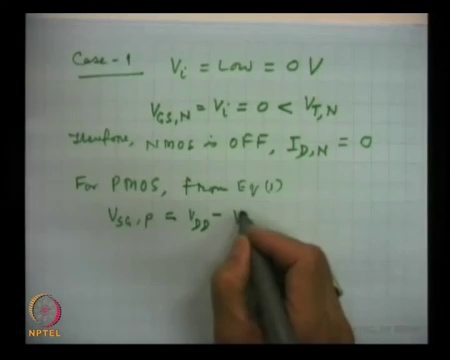 Case-1 Vi = Low = 0 V
VGS,N = Vi = 0 < VT,N
Therefore, NMOS is OFF, ID,N = 0
For PMOS, from Eq (1)
VSG,P = VDD - V
NPTEL